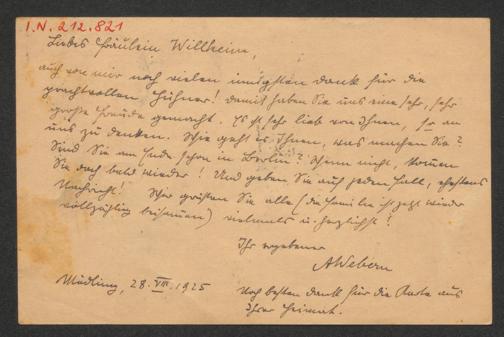 I.N. 212.821
Liebes Fräulein Willheim,
auch von mir noch vielen innigsten Dank für die
prachtvollen Hühner! Damit haben Sie uns eine sehr, sehr
große Freude gemacht. Es ist sehr lieb von Ihnen, so an
uns zu denken. Wie geht es Ihnen, was machen Sie?
Sind Sie am Ende schon in Berlin? Wenn nicht, kommen
Sie doch bald wieder! Und geben Sie auf jeden Fall, ehestens
Nachricht! Wir grüßen Sie alle (die Familie ist jetzt wieder
vollzählig beisammen) vielmals u. herzlichst!
Ihr ergebener
AWebern
Mödling, 28. VIII. 1925
Noch besten Dank für die Karte aus
Ihrer Heimat.